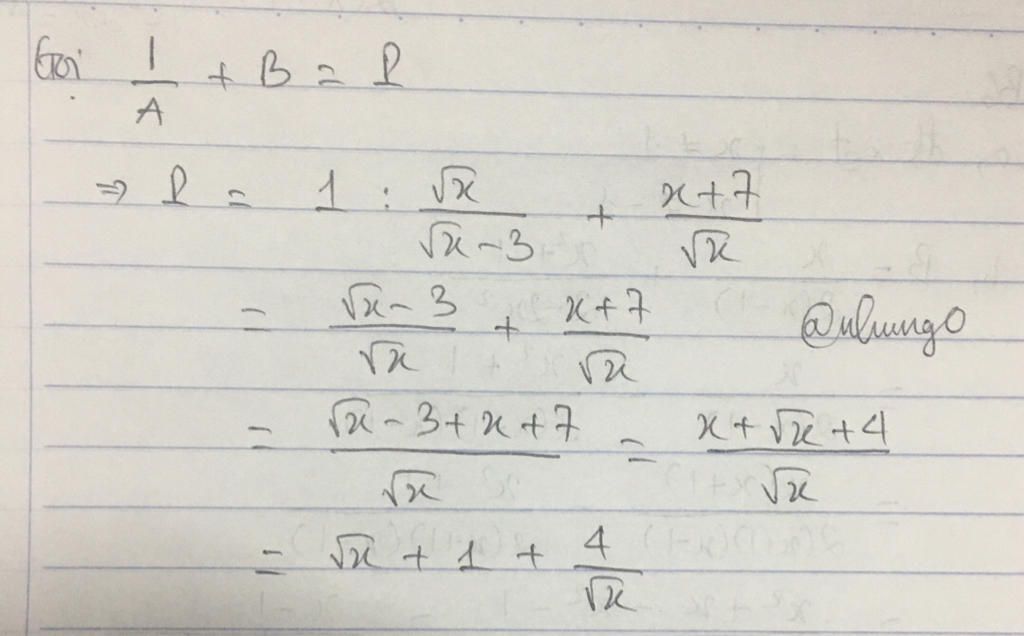 Gọi 1/A + B = P
⇒ P = 1 : √x/(√x - 3) + (x+7)/√x
= (√x - 3)/√x + (x+7)/√x @nhungo
= (√x - 3 + x + 7)/√x = (x + √x + 4)/√x
= √x + 1 + 4/√x